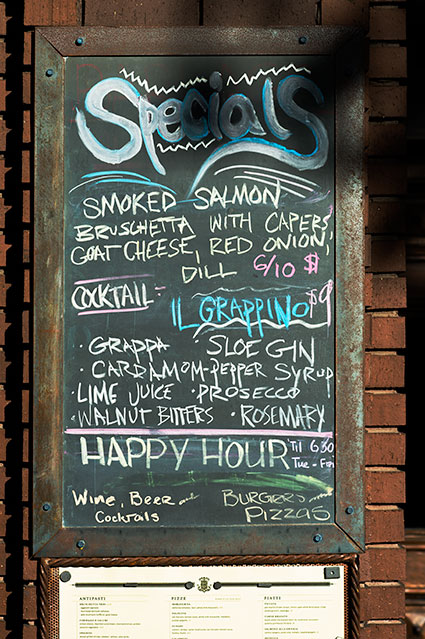 Specials
SMOKED SALMON
BRUSCHETTA WITH CAPERS,
GOAT CHEESE, RED ONION,
DILL 6/10 $
COCKTAIL- $9
IL GRAPPINO
• GRAPPA • SLOE GIN
• CARDAMOM-PEPPER SYRUP
• LIME JUICE • PROSECCO
• WALNUT BITTERS • ROSEMARY
HAPPY HOUR 'Til 6:30
Tue - Fri
Wine, Beer and BURGERS and
Cocktails PIZZAS
ANTIPASTI PIZZE PIATTI